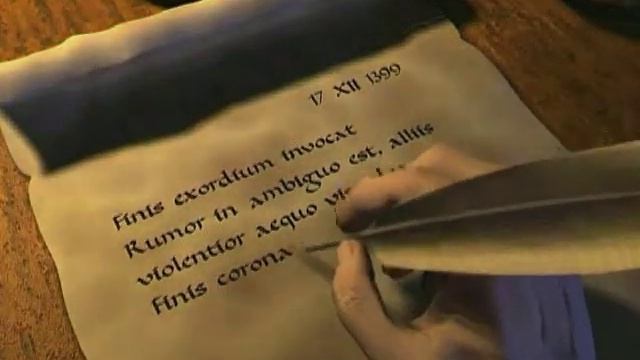 17 XII 1399
Finis exordium invocat
Rumor in ambiguo est, alliis
violentior aequo
Finis corona